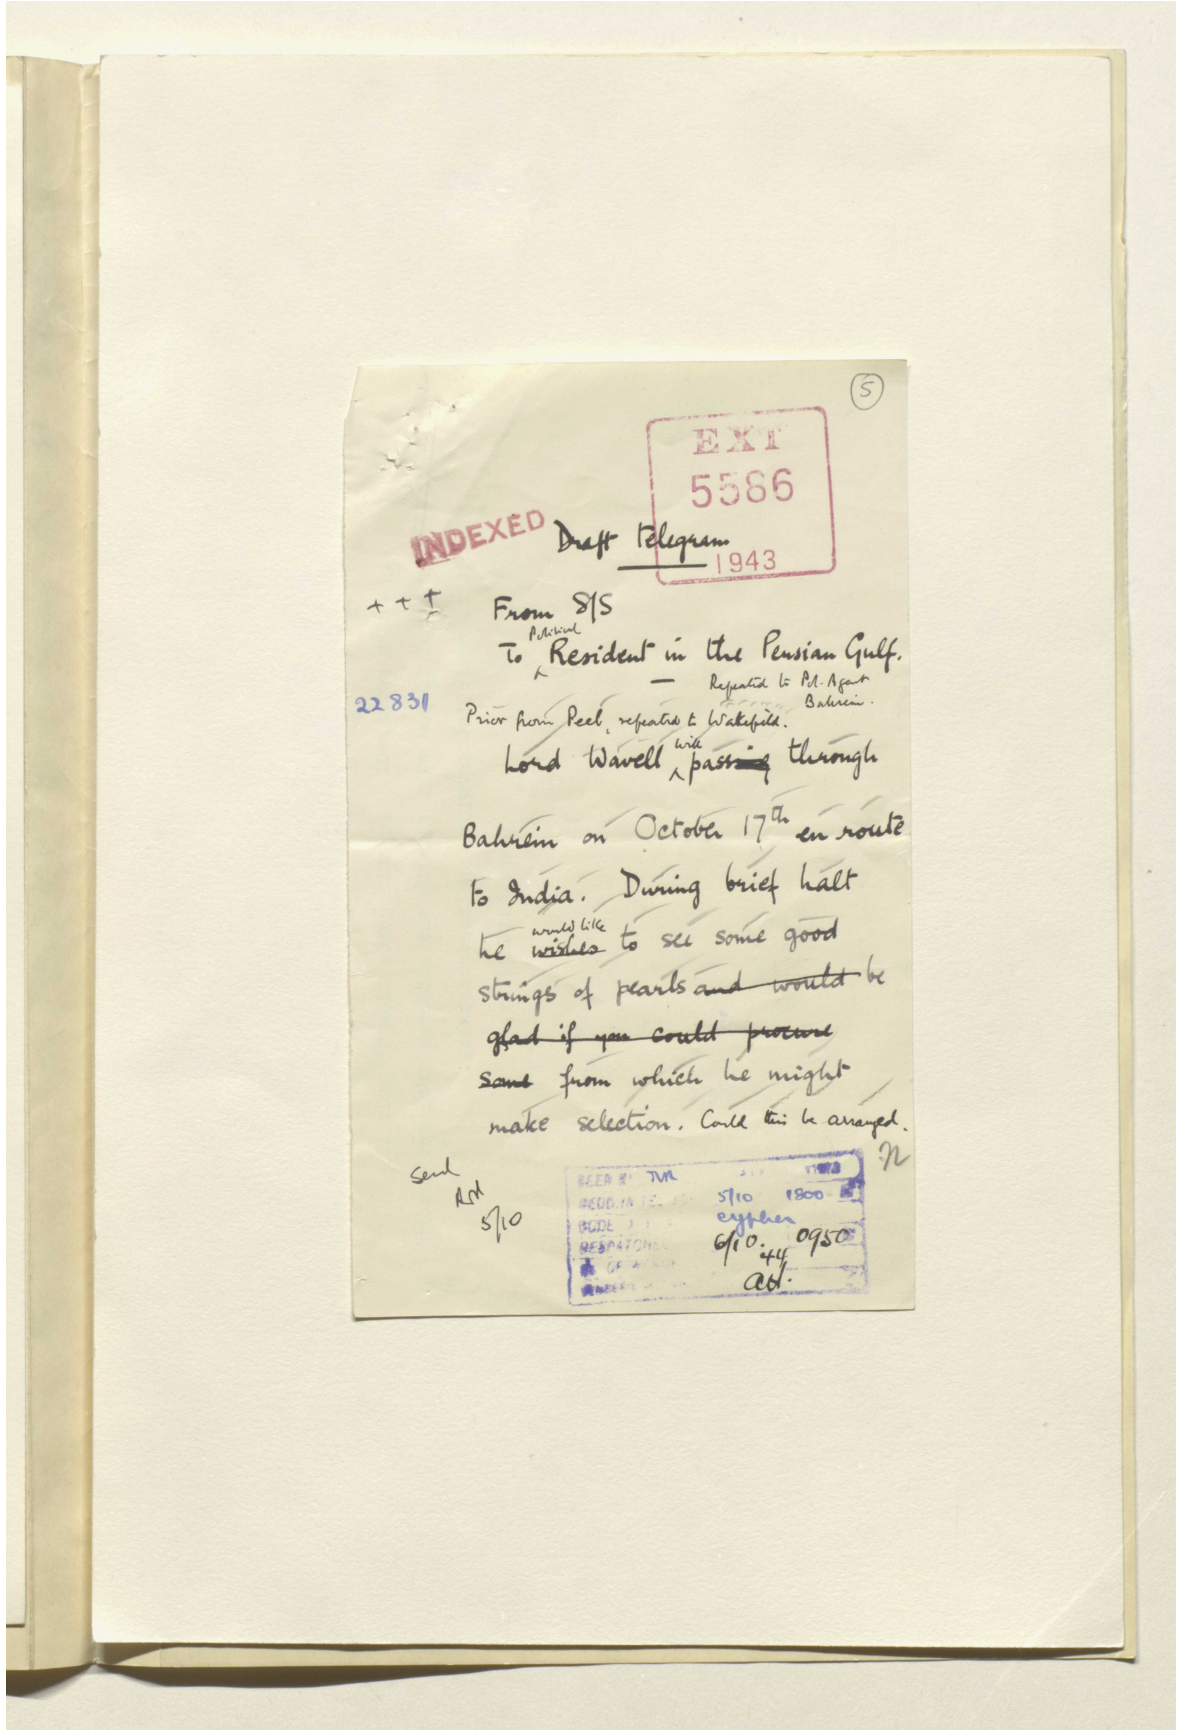 5
EXT
5586
1943
INDEXED
Draft telegram
+ + +
From S/S
Political
To Resident in the Persian Gulf.
Repeated to Pol. Agent
Bahrein.
22831
Prior from Peel, repeated to Wakefield.
will
Lord Wavell passing through
Bahrein on October 17th en route
to India. During brief halt
would like
he wishes to see some good
strings of pearls and would be
glad if you could procure
some from which he might
make selection. Could this be arranged.
Send
5/10
5/10 1800
cypher
6/10. 0950
44